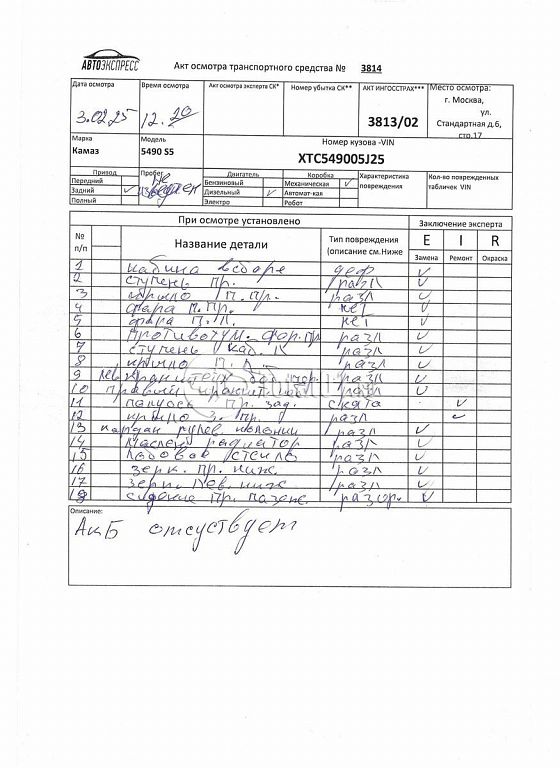 АВТОЭКСПРЕСС
Акт осмотра транспортного средства № 3814
Дата осмотра Время осмотра Акт осмотра эксперта СК* Номер убытка СК** АКТ ИНГОССТРАХ*** Место осмотра:
3.02.25 12.20 3813/02 г. Москва,
ул.
Стандартная д.6,
стр.17
Марка Модель Номер кузова -VIN
Камаз 5490 S5 XTC549005J25
Привод Пробег Двигатель Коробка Характеристика повреждения Кол-во поврежденных табличек VIN
Передний Не Бензиновый Механическая ✓
Задний ✓ изведен Дизельный ✓ Автомат-кая
Полный Электро Робот
При осмотре установлено Заключение эксперта
№ п/п Название детали Тип повреждения (описание см.Ниже E I R
Замена Ремонт Окраска
1 кабина в сборе деф ✓
2 ступень пр. разл ✓
3 крыло п. пр. разл ✓
4 фара п. пр. нет ✓
5 фара п. л. нет ✓
6 Противотум. фар. пр разл ✓
7 ступень каб. л разл ✓
8 крыло п. л. разл ✓
9 лев. разл ✓
10 правый разл ✓
11 пр. зад. ✓
12 крыло з. пр. разл ✓
13 кардан рулев. колонки разл ✓
14 маслян радиатор разл ✓
15 Лобовое стекло разл ✓
16 зерк. пр. ниж. разл ✓
17 зерк. лев. ниж разл ✓
18 сидение пр. разор. ✓
Описание:
АкБ отсуствует